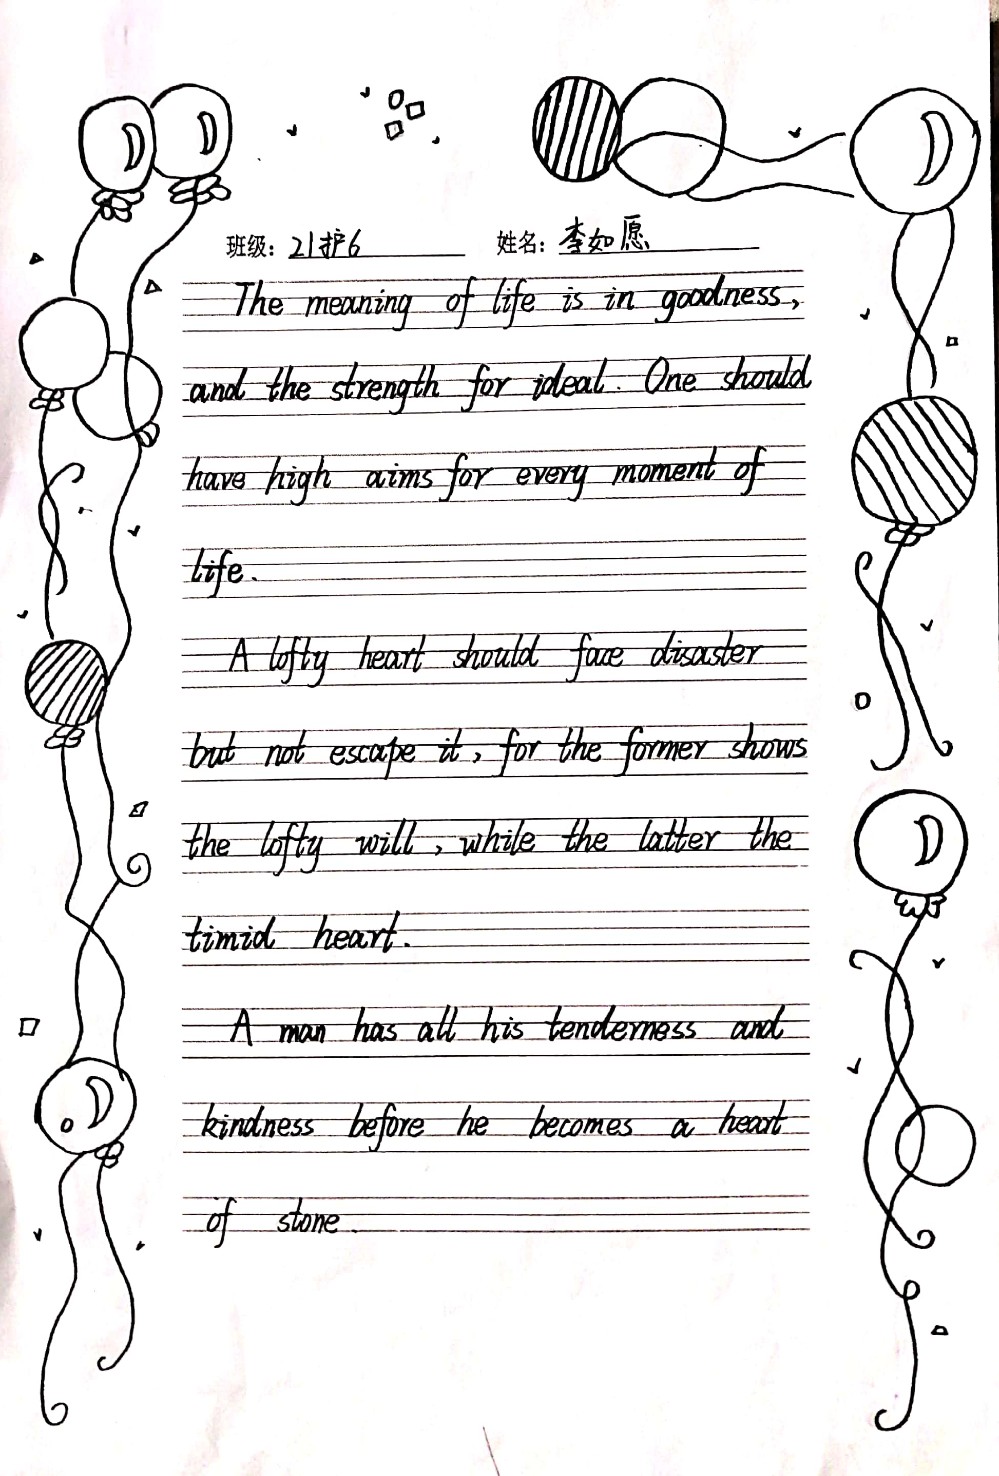 班级: 21护6 姓名: 李如愿
The meaning of life is in goodness,
and the strength for ideal. One should
have high aims for every moment of
life.
A lofty heart should face disaster
but not escape it, for the former shows
the lofty will, while the latter the
timid heart.
A man has all his tenderness and
kindness before he becomes a heart
of stone.